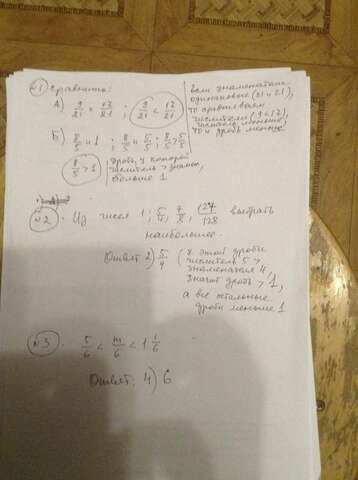 №1 Сравнить:
А) 9/21 и 12/21 ; 9/21 < 12/21
Если знаменатели
одинаковые (21 и 21),
то сравниваем
числители (9<12),
числитель меньше,
то и дробь меньше
Б) 8/5 и 1 ; 8/5 и 5/5 ; 8/5 > 5/5
8/5 > 1
дробь, у которой
числитель > знамен,
больше 1
№2. Из чисел 1; 5/4; 7/8; 127/128 выбрать
наибольшее.
Ответ 2) 5/4 (у этой дроби
числитель 5 >
знаменателя 4,
значит дробь > 1,
а все остальные
дроби меньше 1
№3. 5/6 < m/6 < 1 1/6
Ответ: 4) 6